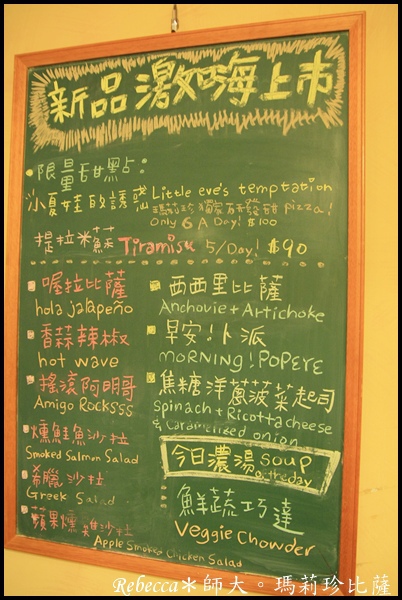 新品激嗨上市
限量甜點:
小夏娃的誘惑 Little eve's temptation
瑪莉珍獨家研發甜pizza!
Only 6 A Day! $100
提拉米蘇 Tiramisu 5/Day! $90
喔拉比薩
hola jalapeño
香蒜辣椒
hot wave
搖滾阿明哥
Amigo Rocksss
燻鮭魚沙拉
Smoked Salmon Salad
希臘沙拉
Greek Salad
蘋果燻雞沙拉
Apple Smoked Chicken Salad
西西里比薩
Anchovie + Artichoke
早安!卜派
MORNING! POPEYE
焦糖洋蔥菠菜起司
Spinach + Ricotta cheese
& Caramelised onion
今日濃湯 soup
of the day
鮮蔬巧達
Veggie Chowder
Rebecca*師大。瑪莉珍比薩